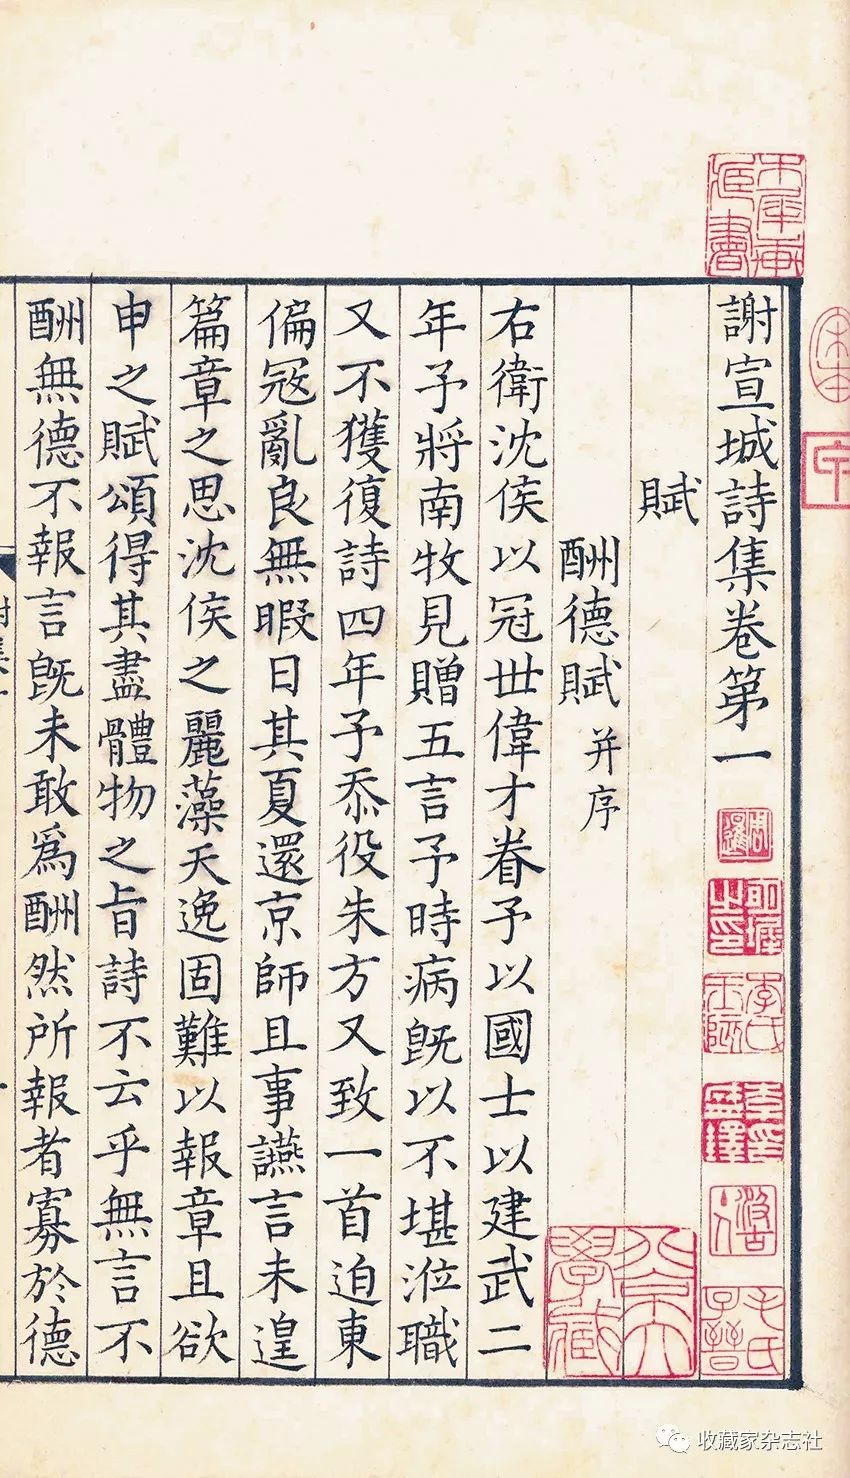 謝宣城詩集卷第一
賦
酬德賦 并序
右衛沈侯以冠世偉才眷予以國士以建武二
年予將南牧見贈五言予時病旣以不堪涖職
又不獲復詩四年予忝役朱方又致一首迫東
偏寇亂良無暇日其夏還京師且事讌言未遑
篇章之思沈侯之麗藻天逸固難以報章且欲
申之賦頌得其盡體物之旨詩不云乎無言不
酬無德不報言旣未敢爲酬然所報者寡於德
周暹
毛氏子晉
宋本
收藏家杂志社